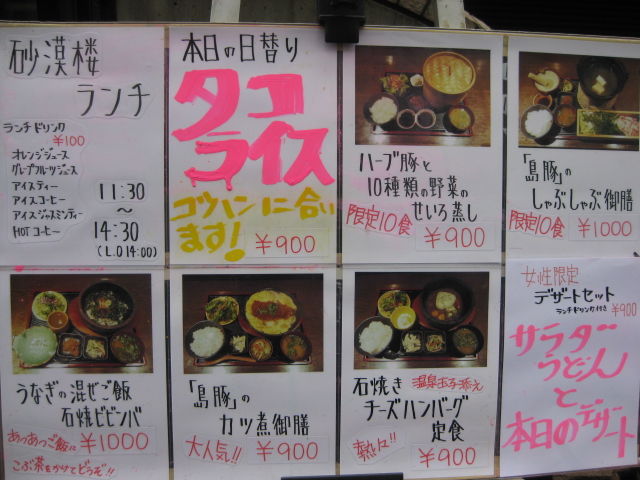 砂漠楼
ランチ
ランチドリンク
¥100
オレンジジュース
グレープフルーツジュース
アイスティー
アイスコーヒー
アイスジャスミンティー
HOT コーヒー
11:30
〜
14:30
(L.O 14:00)
本日の日替り
タコ
ライス
ゴハンに合い
ます!
¥900
ハーブ豚と
10種類の野菜の
せいろ蒸し
限定10食
¥900
「島豚」の
しゃぶしゃぶ御膳
限定10食
¥1000
うなぎの混ぜご飯
石焼ビビンバ
あつあつご飯に
¥1000
こぶ茶をかけてどうぞ!!
「島豚」の
カツ煮御膳
大人気!!
¥900
石焼き
温泉玉子添え
チーズハンバーグ
定食
熱々!!
¥900
女性限定
デザートセット
ランチドリンク付き
¥900
サラダ
うどん
と
本日のデザート